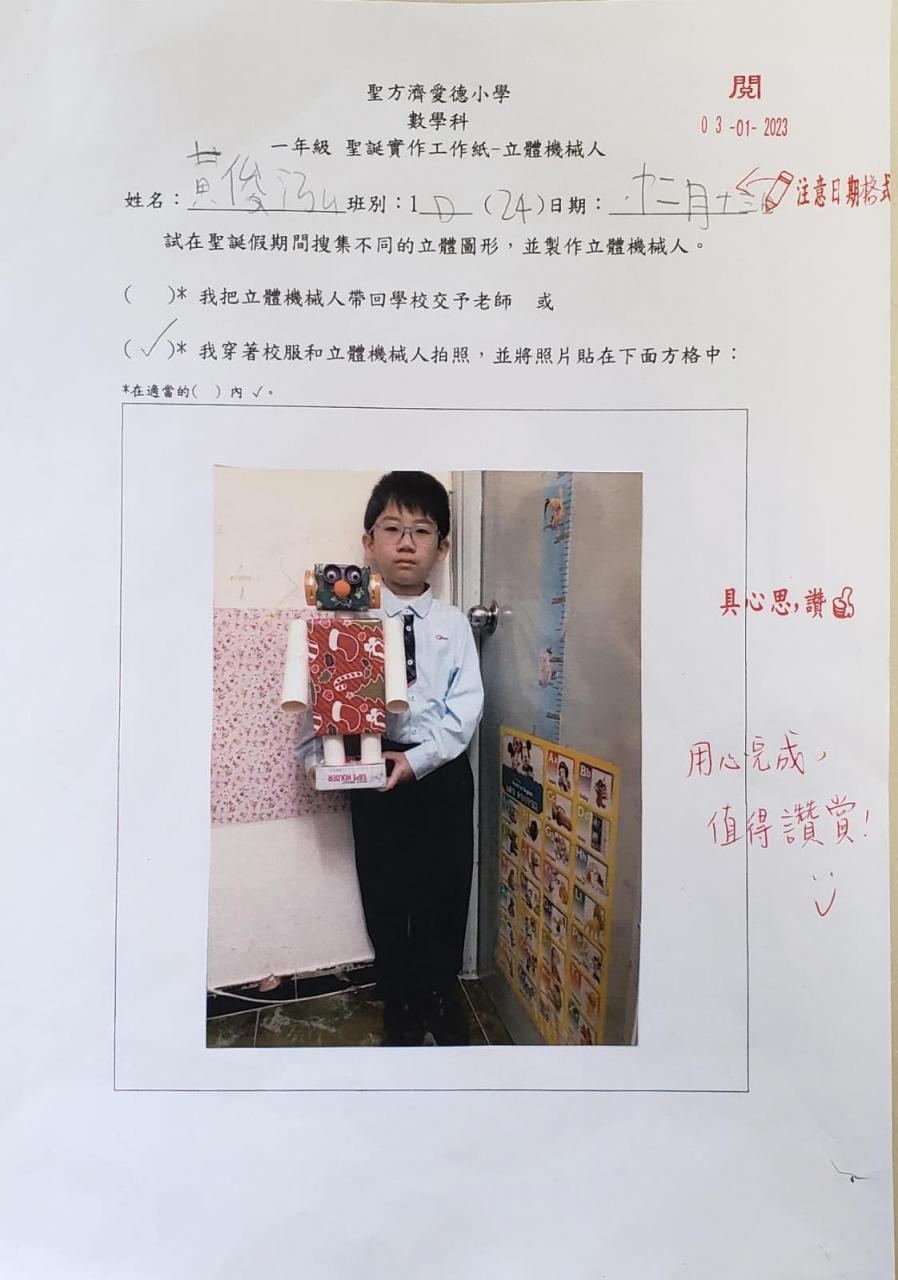 聖方濟愛德小學
閱
數學科
03-01-2023
一年級 聖誕實作工作紙-立體機械人
姓名：黃俊泓 班別：1 D (24) 日期：十二月十三
注意日期格式
試在聖誕假期間搜集不同的立體圖形，並製作立體機械人。
(   )* 我把立體機械人帶回學校交予老師 或
( ✓ )* 我穿著校服和立體機械人拍照，並將照片貼在下面方格中：
*在適當的(   ) 內 ✓。
具心思,讚
TAPE HOLDER
Aa
Bb
用心完成，
值得讚賞!